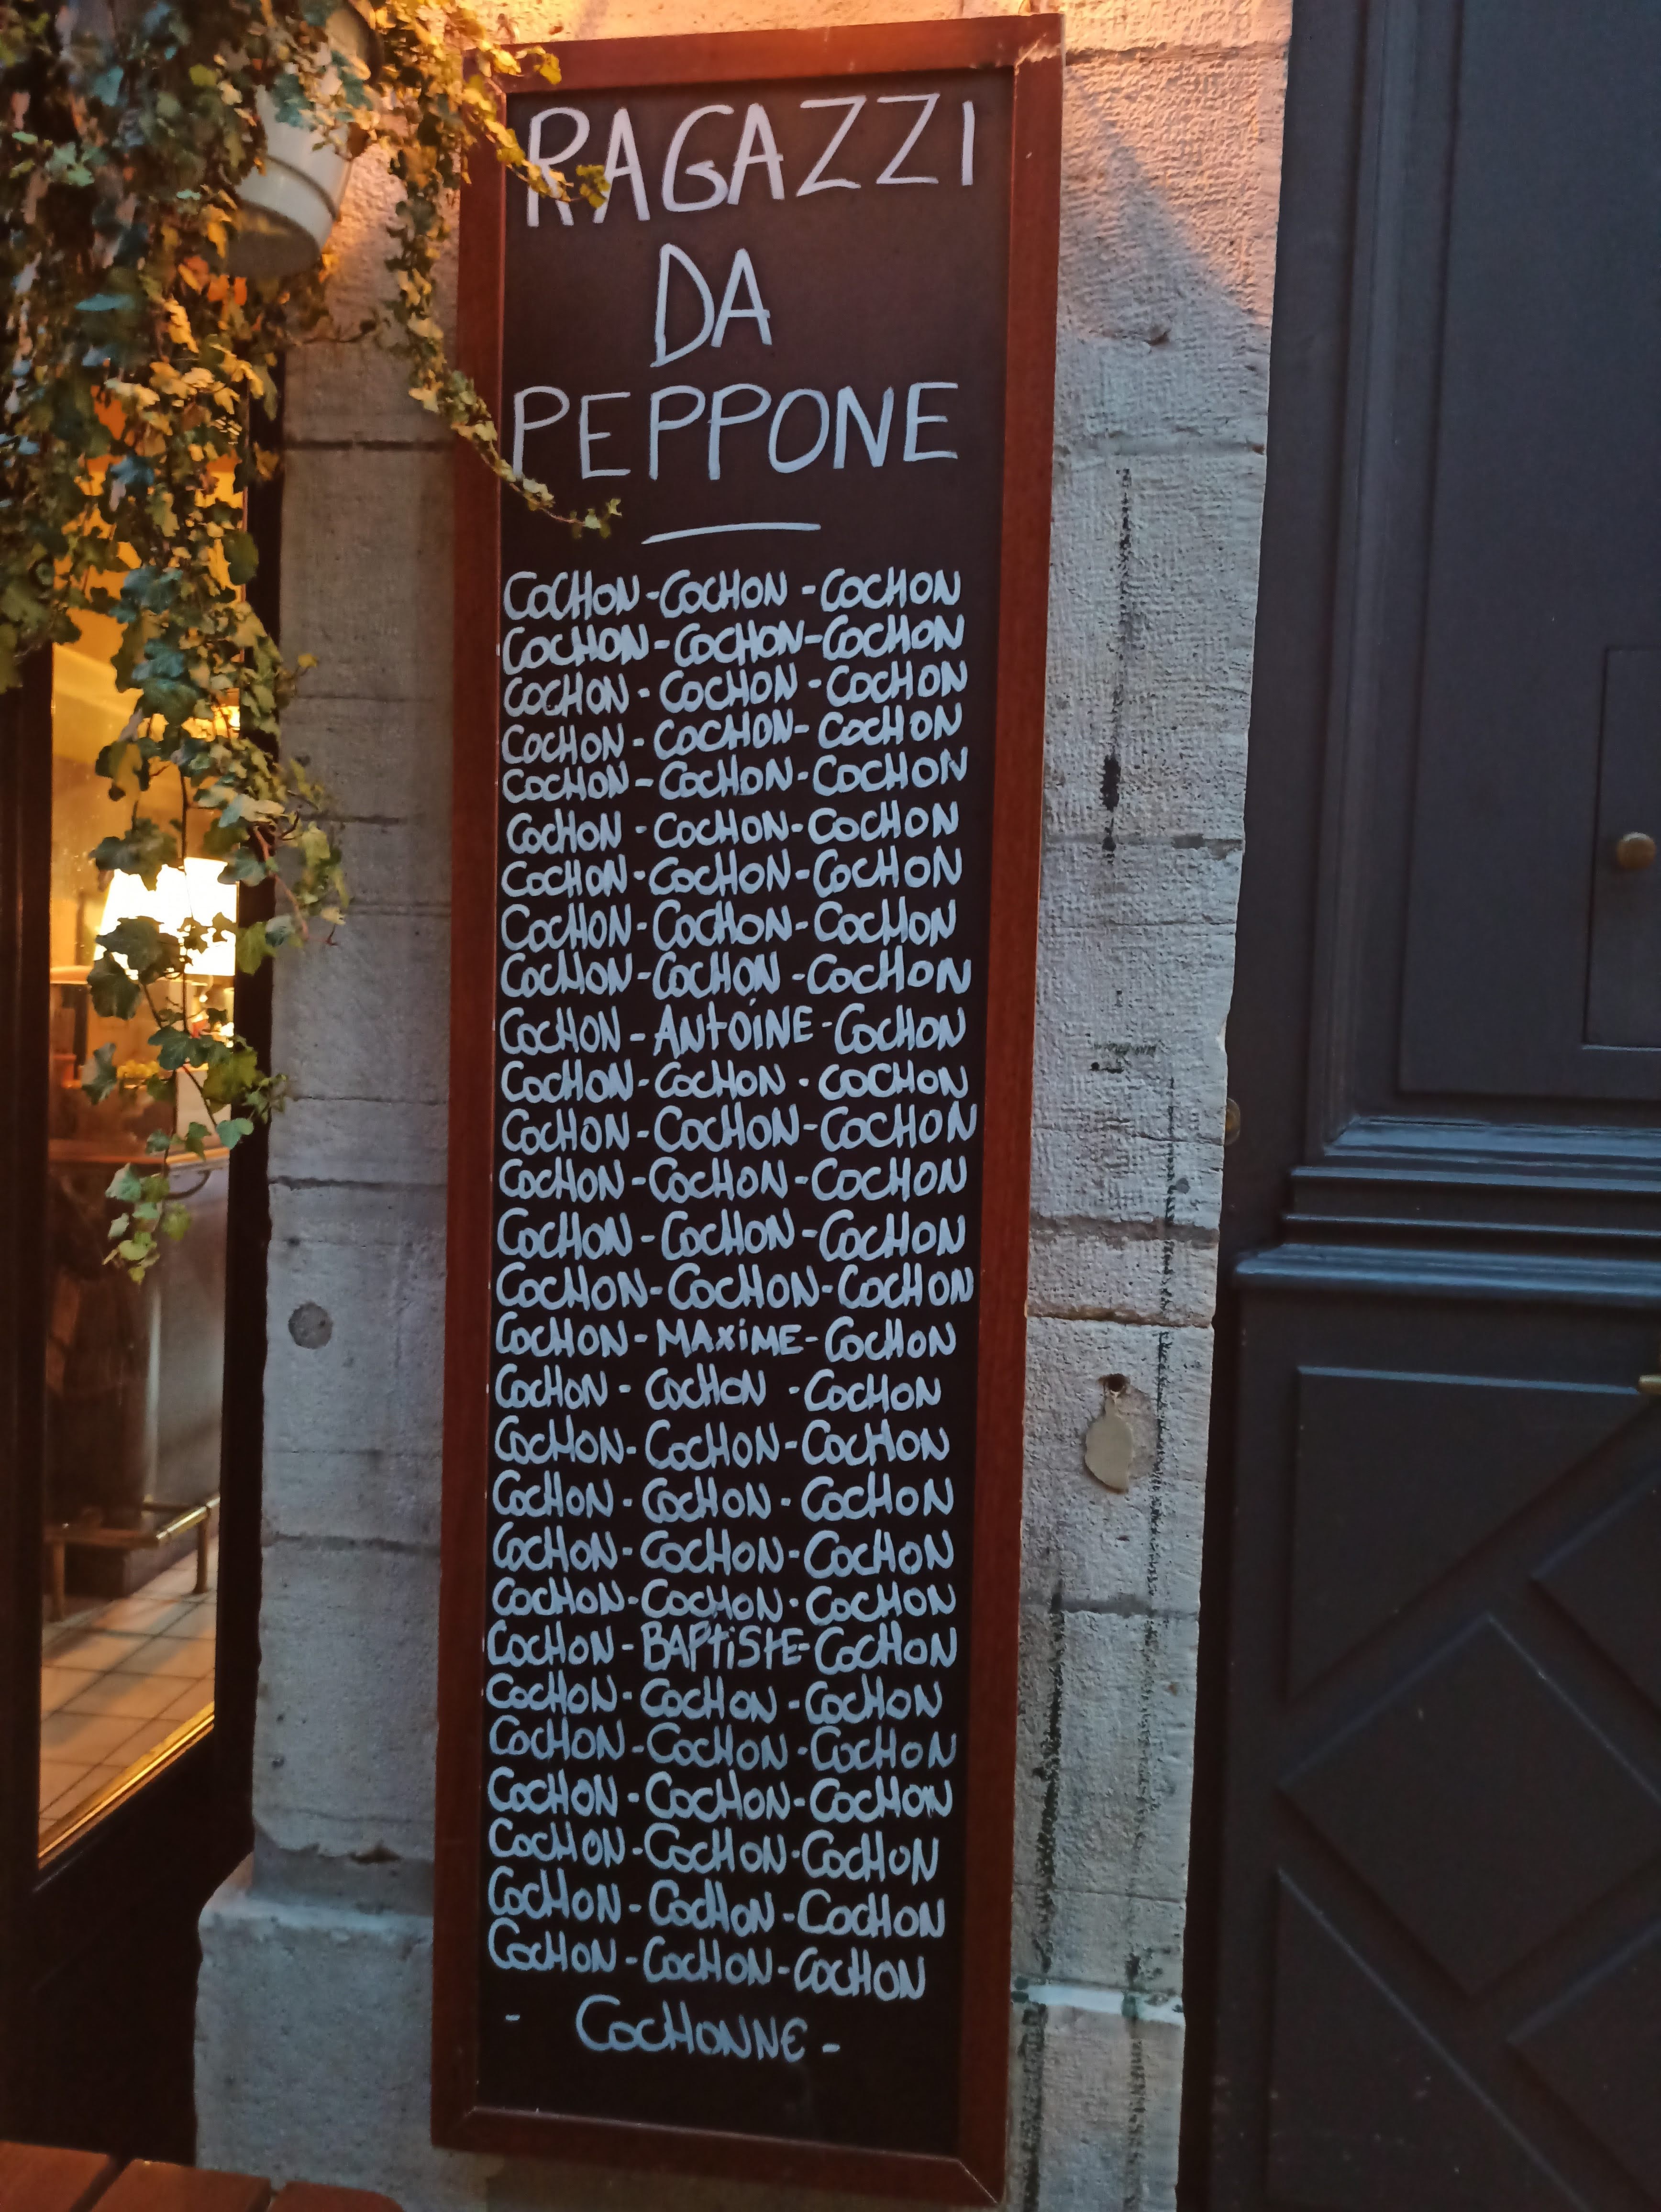 RAGAZZI
DA
PEPPONE
COCHON - COCHON - COCHON
COCHON - COCHON - COCHON
COCHON - COCHON - COCHON
COCHON - COCHON - COCHON
COCHON - COCHON - COCHON
COCHON - COCHON - COCHON
COCHON - COCHON - COCHON
COCHON - COCHON - COCHON
COCHON - COCHON - COCHON
COCHON - ANTOINE - COCHON
COCHON - COCHON - COCHON
COCHON - COCHON - COCHON
COCHON - COCHON - COCHON
COCHON - COCHON - COCHON
COCHON - COCHON - COCHON
COCHON - MAXIME - COCHON
COCHON - COCHON - COCHON
COCHON - COCHON - COCHON
COCHON - COCHON - COCHON
COCHON - COCHON - COCHON
COCHON - COCHON - COCHON
COCHON - BAPTISTE - COCHON
COCHON - COCHON - COCHON
COCHON - COCHON - COCHON
COCHON - COCHON - COCHON
COCHON - COCHON - COCHON
COCHON - COCHON - COCHON
COCHON - COCHON - COCHON
- COCHONNE -